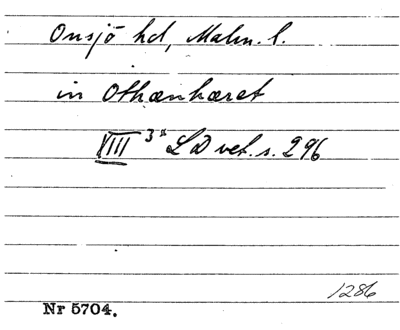 Onsjö hd, Malm. l.
in Othænhæret
XIII 3/4 LD vet. s. 296
1286
Nr 5704.